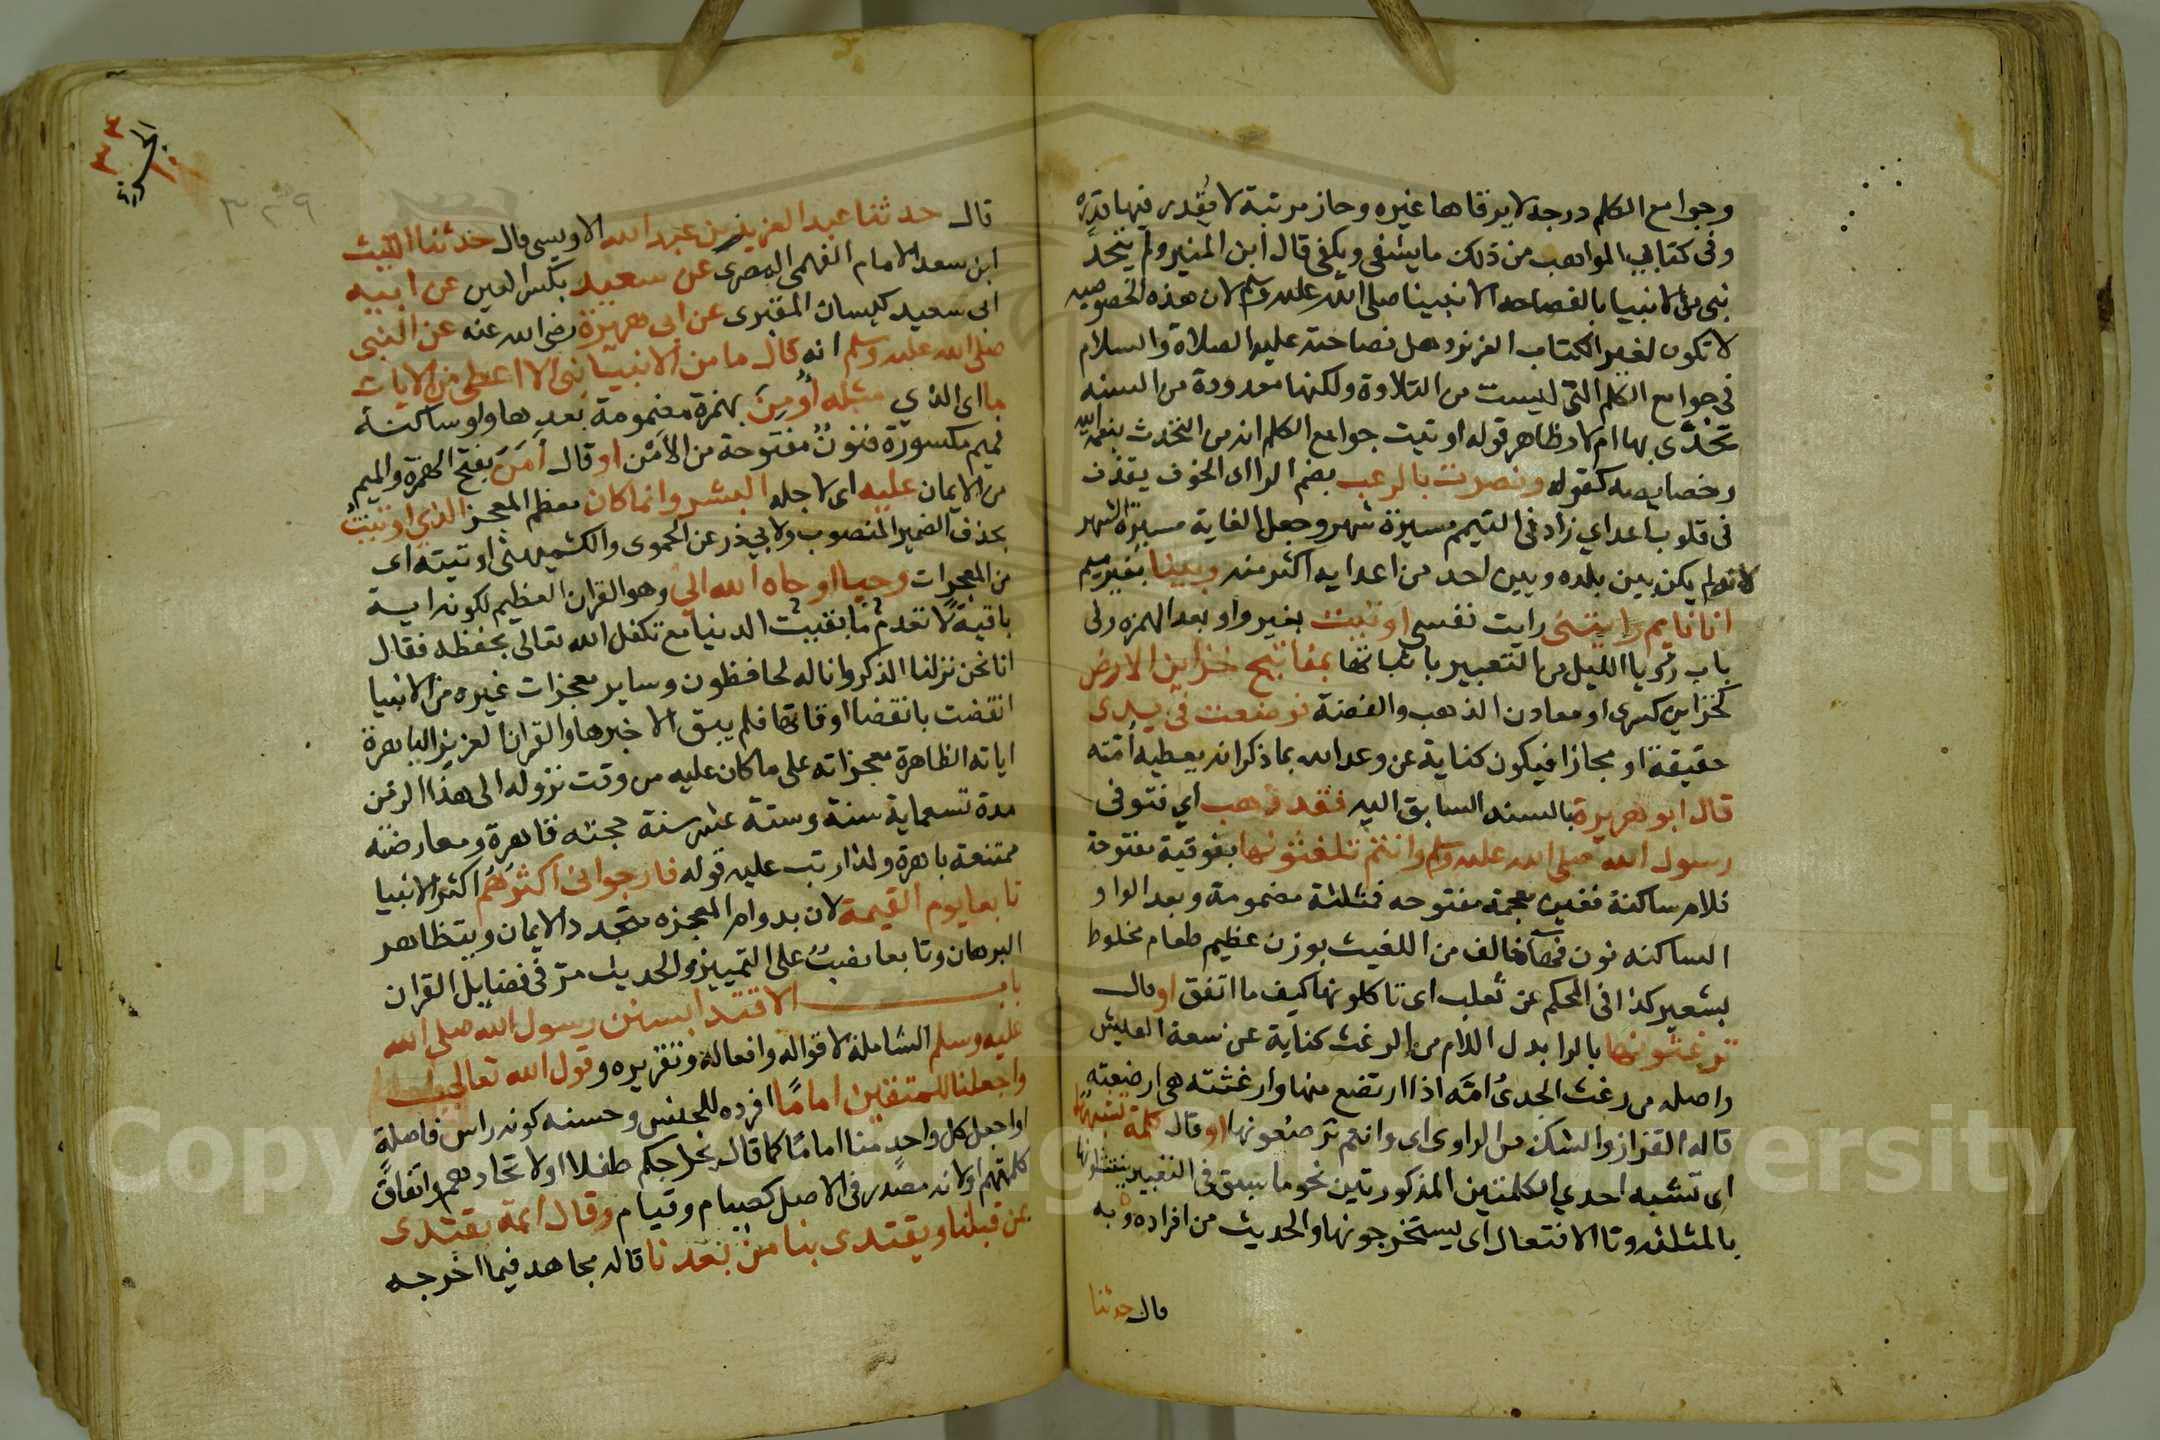 وجوامع الكلم درجة لا يرقاها غيره وحاز مرتبة لا يقدر فيها قدره
وفى كتابى المواهب من ذلك ما يشفى ويكفى قال ابن المنير ولم يتحد
نبى من الانبيا بالفصاحه الا نبينا صلى الله عليه وسلم لان هذه الخصوصيه
لا تكون لغير الكتاب العزيز وهل فصاحته عليه الصلاة والسلام
فى جوامع الكلم التى ليست من التلاوة ولكنها معدودة من السنه
تحدى بها ام لا وظاهر قوله اوتيت جوامع الكلم انه من التحدث بنعمة الله
وخصايصه كقوله ونصرت بالرعب بضم الرا اى الخوف يقذف
فى قلوب اعداي زاد فى التيمم مسيرة شهر وجعل الغاية مسيرة الشهر
لانه لم يكن بين بلده وبين احد من اعدايه اكثر منه وبينا بغير ميم
انا نايم رايتنى رايت نفسى اوتيت بغير واو بعد الهمزه ولى
باب رؤيا الليل من التعبير باثباتها بمفاتيح خزاين الارض
كخزاين كسرى او معادن الذهب والفضة فوضعت في يدى
حقيقة او مجازا فيكون كناية عن وعد الله بما ذكر انه يعطيه امته
قال ابو هريرة بالسند السابق اليه فقد ذهب اي فتوفى
رسول الله صلى الله عليه وسلم وانتم تلغثونها بفوقية مفتوحة
فلام ساكنة فغين معجمة مفتوحه فمثلثة مضمومة وبعد الواو
الساكنه نون فها فالف من اللغيث بوزن عظيم طعام مخلوط
بشعير كذا فى المحكم عن ثعلب اى تاكلونها كيف ما اتفق او قال
ترغثونها بالرا بدل اللام من الرغث كناية عن سعة العيش
واصله من رغث الجدي امه اذا ارتضع منها وارغثته هى ارضعته
قاله القزاز والشك من الراوى اى وانتم ترضعونها او قال كلمة تشبهها
اى تشبه احدي الكلمتين المذكورتين نحو ما سبق فى التعبير تنتثلونها
بالمثلثه وتا الافتعال اى يستخرجونها والحديث من افراده وبه
قال حدثنا
٣٣٩
قال حدثنا عبد العزيز بن عبد الله الاويسى قال حدثنا الليث
ابن سعد الامام الفهمى المصرى عن سعيد بكسر العين عن ابيه
ابى سعيد كيسان المقبرى عن ابى هريرة رضى الله عنه عن النبى
صلى الله عليه وسلم انه قال ما من الانبيا نبى الا اعطى من الايات
ما اى الذي مثله أومن بهمزة مضمومة بعدها واو ساكنة
فميم مكسورة فنون مفتوحة من الأمن او قال أمن بفتح الهمزة والميم
من الايمان عليه اى لاجله البشر وانما كان معظم المعجز الذي اوتيت
بحذف الضمير المنصوب ولابي ذر عن الحموى والكشميهنى اوتيته اى
من المعجزات وحيا اوحاه الله الي وهو القران العظيم لكونه اية
باقية لا تعدم ما بقيت الدنيا مع تكفل الله تعالى بحفظه فقال
انا نحن نزلنا الذكر وانا له لحافظون وساير معجزات غيره من الانبيا
انقضت بانقضا اوقاتها فلم يبق الا خبرها والقران العزيز الباهرة
اياته الظاهرة معجزاته على ما كان عليه من وقت نزوله الى هذا الزمن
مدة تسعماية سنة وستة عشر سنة حجته قاهرة ومعارضته
ممتنعة باهرة ولذا رتب عليه قوله فارجو انى اكثرهم اكثر الانبيا
تابعا يوم القيمة لان بدوام المعجزه يتجدد الايمان ويتظاهر
البرهان وتابعا نصب على التمييز والحديث مر فى فضايل القران
باب الاقتدا بسنن رسول الله صلى الله
عليه وسلم الشاملة لاقواله وافعاله وتقريره وقول الله تعالى
واجعلنا للمتقين اماما افرده للجنس وحسنه كونه راس فاصلة
او اجعل كل واحد منا اماما كما قال نخرجكم طفلا او لاتحادهم واتفاق
كلمتهم او لانه مصدر فى الاصل كصيام وقيام وقال ايمة نقتدى
بمن قبلنا ويقتدى بنا من بعدنا قاله مجاهد فيما اخرجه
Copyright © King Saud University